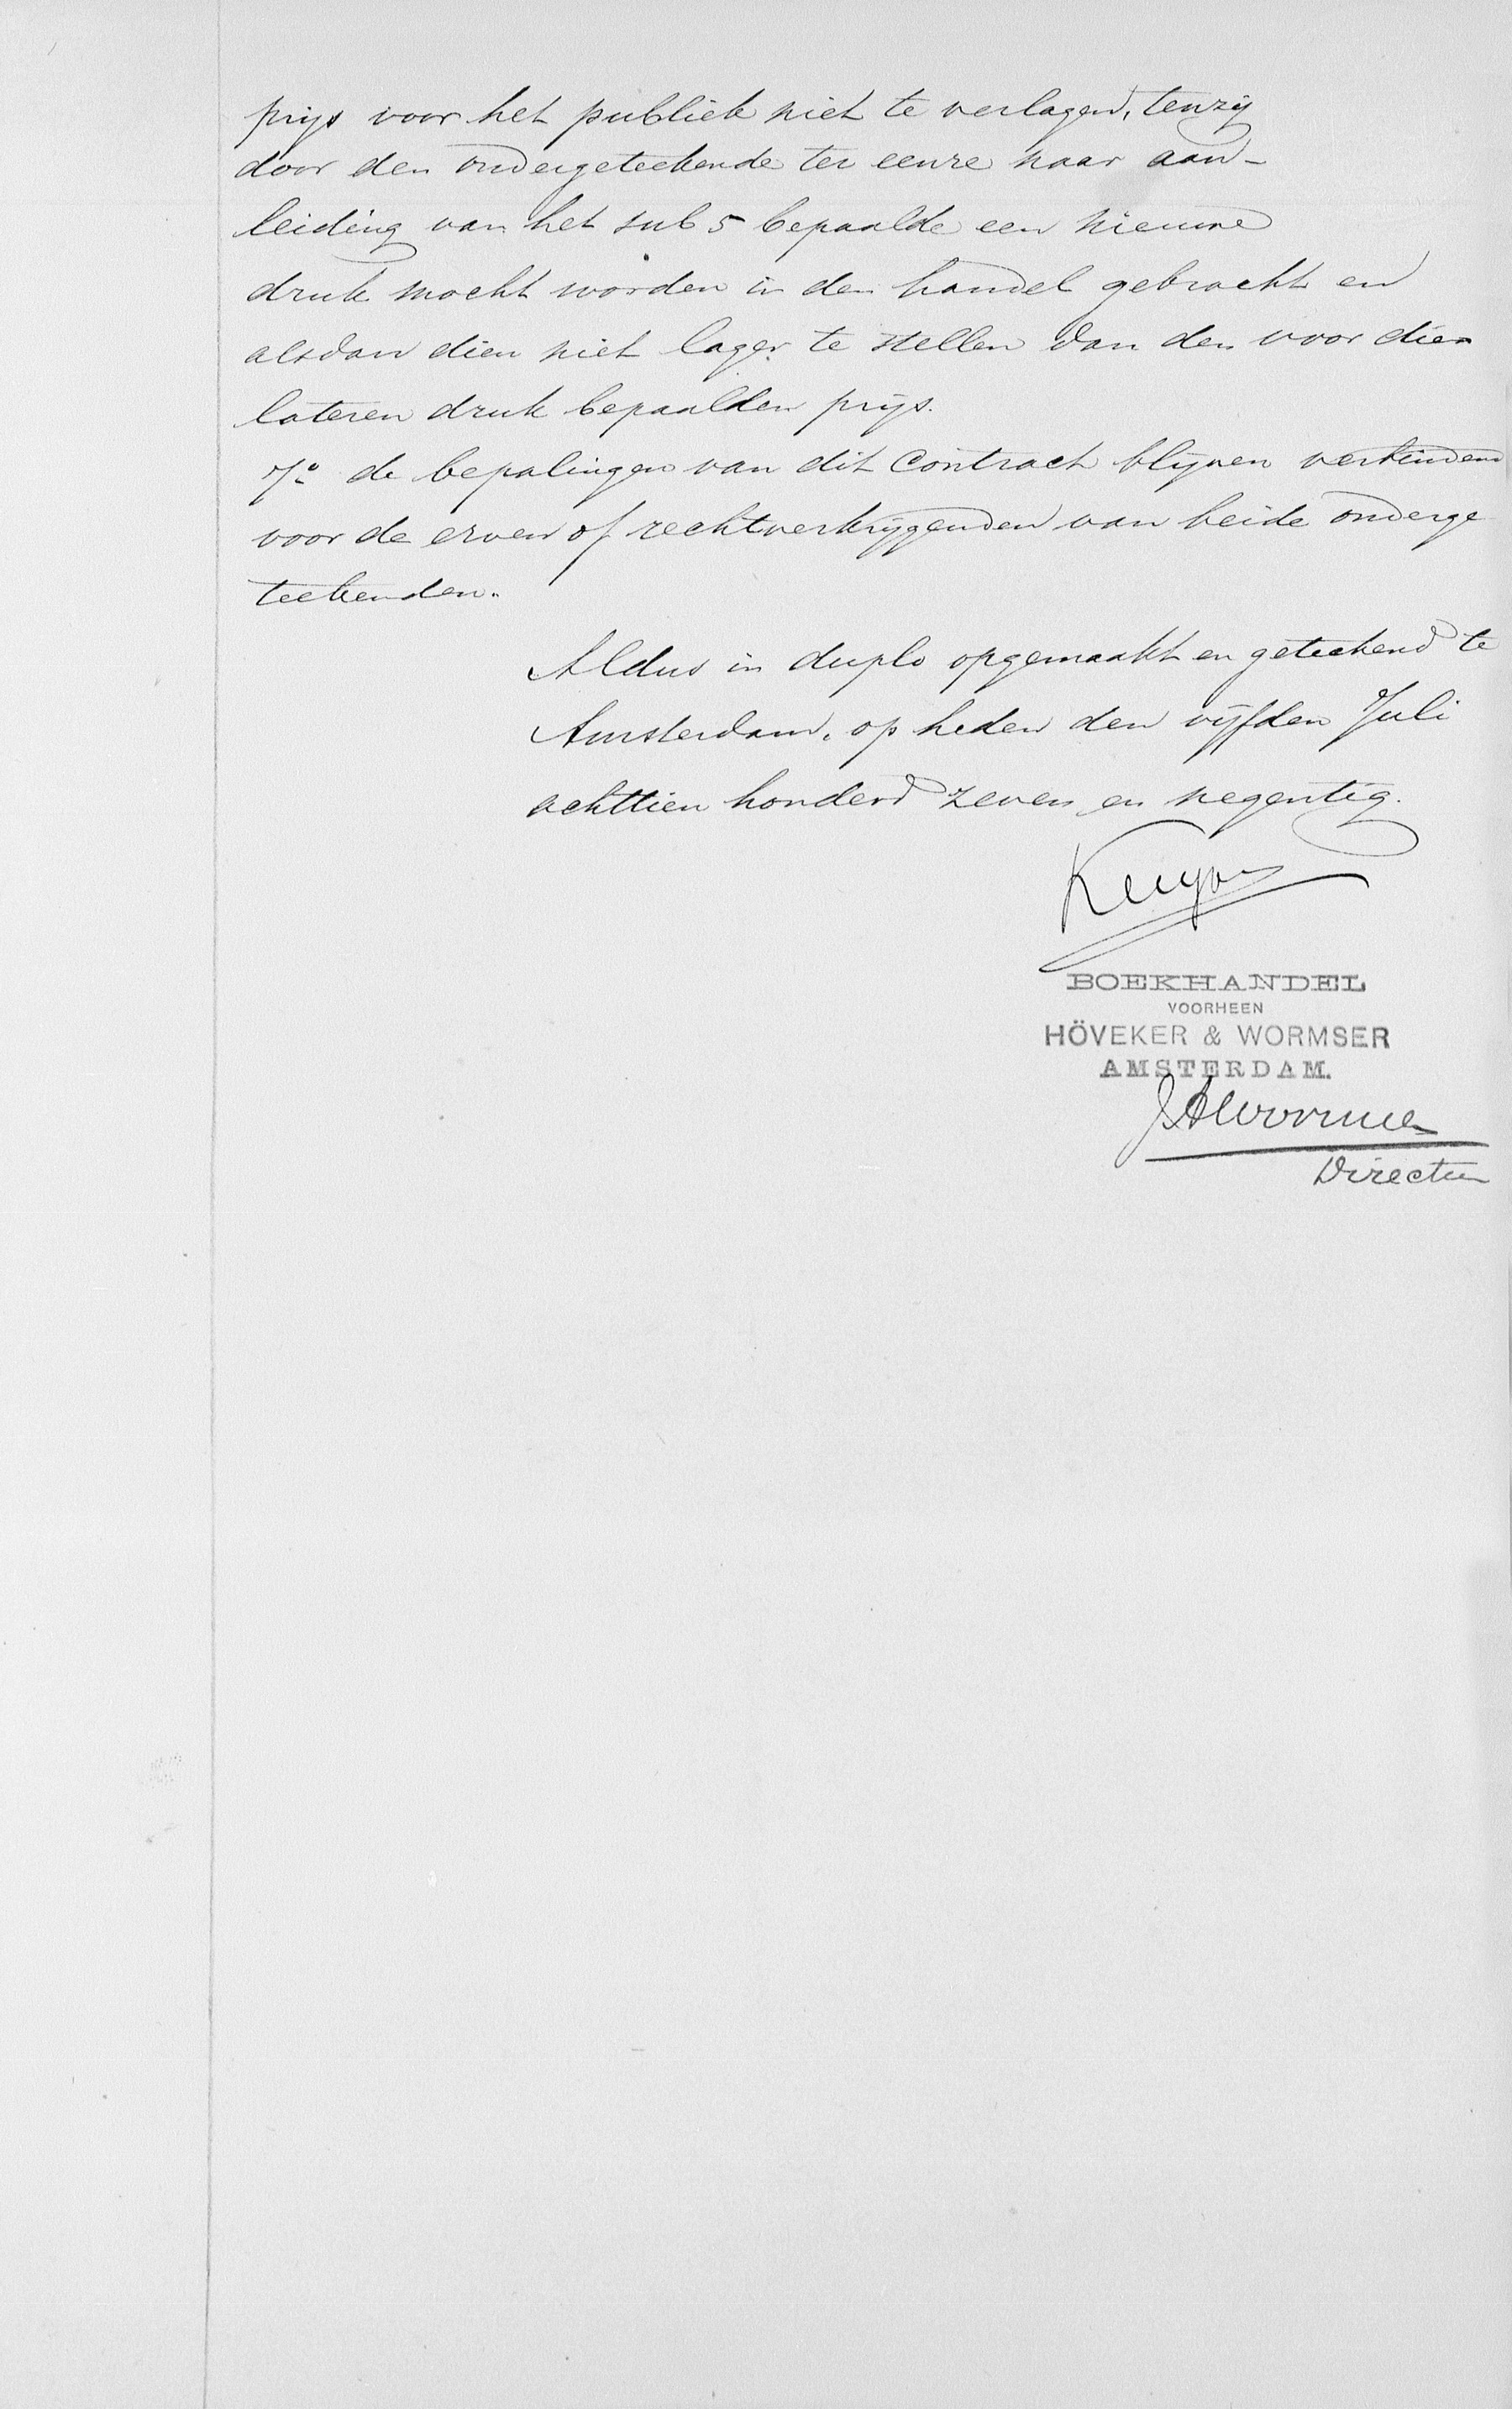 prijs voor het publiek niet te verlagen, tenzij
door den ondergeteekende ter eenre naar aan-
leiding van het sub 5 bepaalde een nieuwe
druk mocht worden in den handel gebracht en
alsdan dien niet lager te stellen dan den voor dien
lateren druk bepaalden prijs.
7o de bepalingen van dit Contract blijven verbindend
voor de erven of rechtverkrijgenden van beide onderge
teekenden.
Aldus in duplo opgemaakt en geteekend te
Amsterdam, op heden den vijfden Juli
achttien honderd zeven en negentig.
Kuyper
BOEKHANDEL
VOORHEEN
HÖVEKER & WORMSER
AMSTERDAM.
JAWormser
Directeur